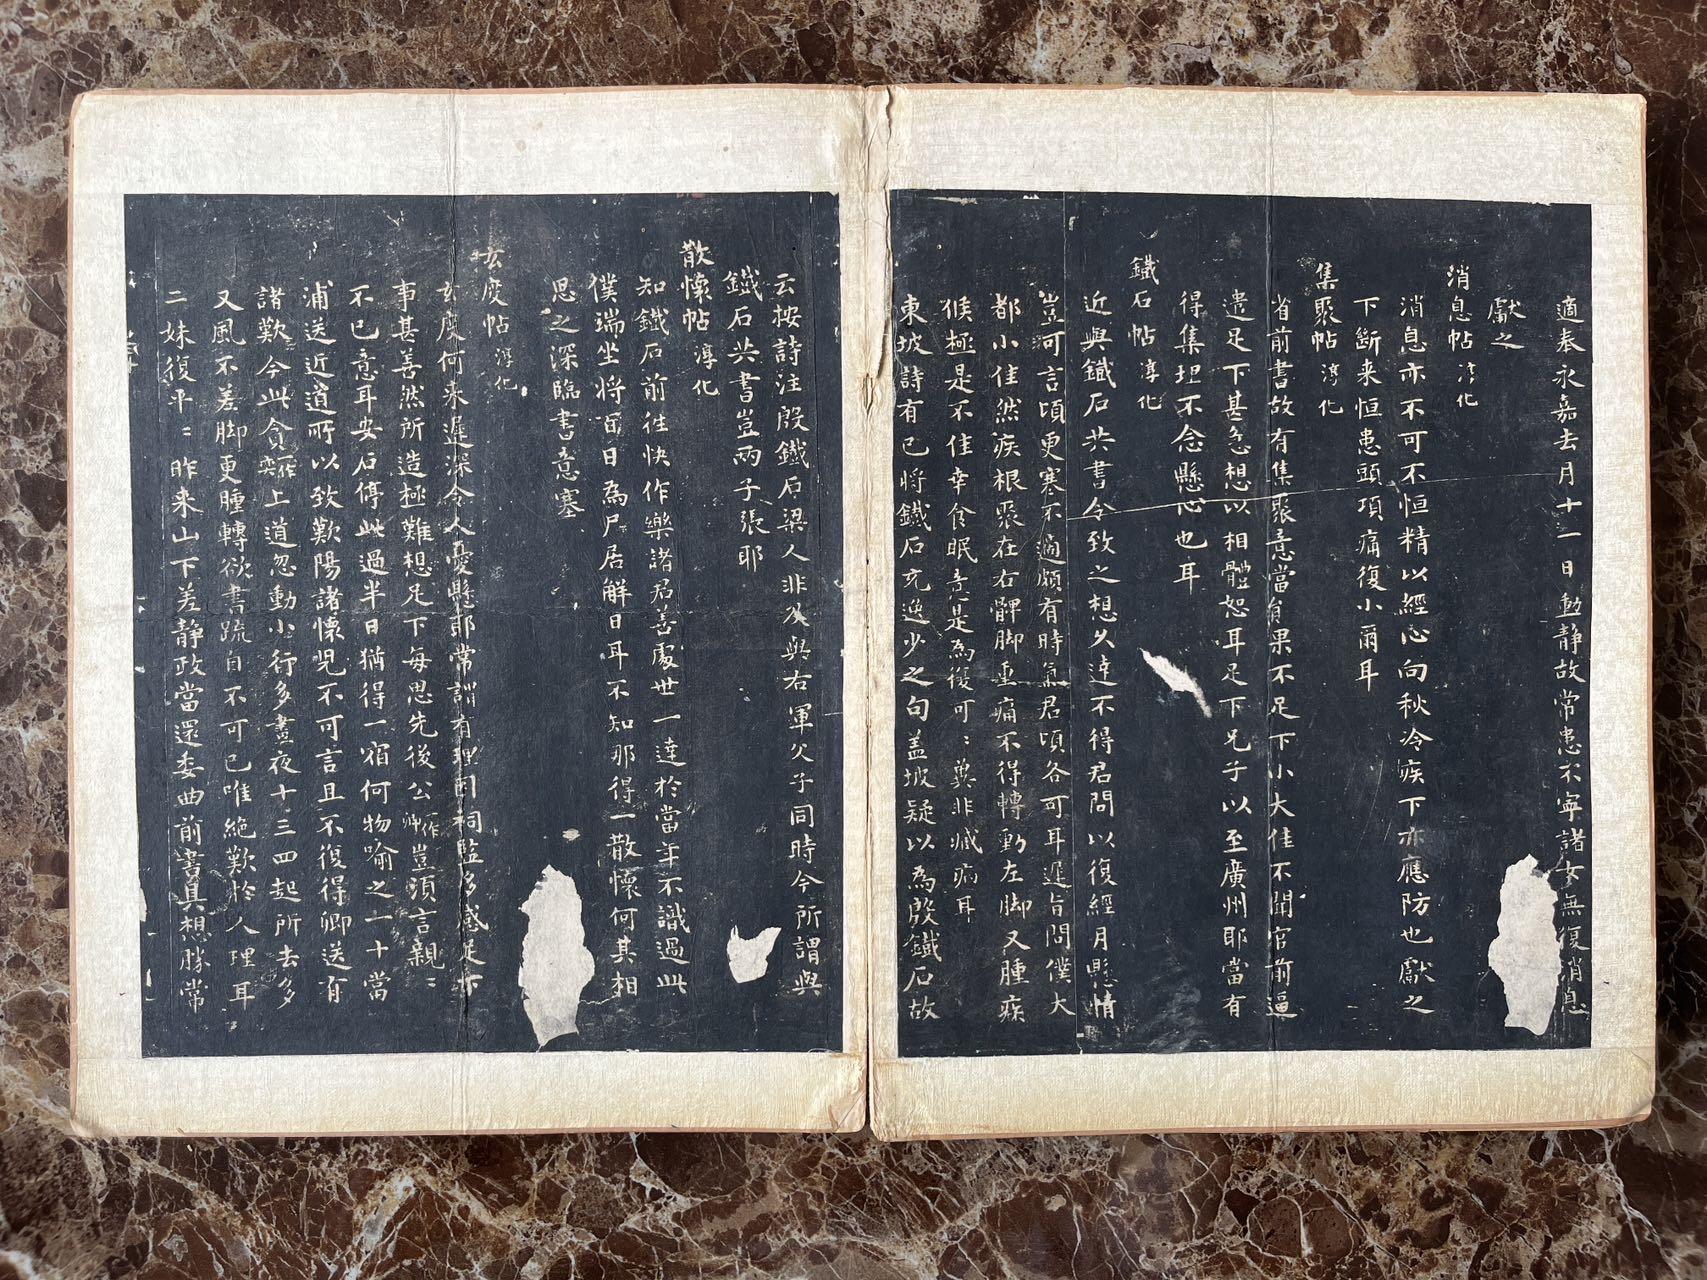 適奉永嘉去月十一日動靜故常患不寧諸女無復消息
獻之
消息帖 淳化
消息亦不可不恒精以經心向秋冷疾下亦應防也獻之
下斷来恒患頭項痛復小爾耳
集聚帖 淳化
省前書故有集聚意當有果不足下小大佳不聞官前逼
遣足下甚急想以相體恕耳足下兄子以至廣州耶當有
得集理不念懸心也耳
鐵石帖 淳化
近與鐵石共書令致之想久達不得君問以復經月懸情
豈可言頃更寒不適頗有時氣君頃各可耳遲旨問僕大
都小佳然疾根聚在右髀脚重痛不得轉動左脚又腫疾
候極是不佳幸食眠意是為復可〻冀非臧病耳
東坡詩有已將鐵石充逸少之句盖坡疑以為殷鐵石故
云按詩注殷鐵石梁人非必與右軍父子同時今所謂與
鐵石共書豈兩子張耶
散懷帖 淳化
知鐵石前往快作樂諸君善處世一達於當年不識過此
僕端坐將百日為尸居解日耳不知那得一散懷何其相
思之深臨書意塞
玄度帖 淳化
玄度何来遲深令人憂懸耶常謂有理因祠監多感足下
事甚善然所造極難想足下每思先後公一作卿豈須言親〻
不已意耳安石停此過半日猶得一宿何物喻之一十當
浦送近道所以致歎陽諸懷兒不可言且不復得卿送有
諸歎今此貪一作奕上道忽動小行多晝夜十三四起所去多
又風不差脚更腫轉欲書疏自不可已唯絶歎於人理耳
二妹復平〻昨来山下差静政當還委曲前書具想勝常